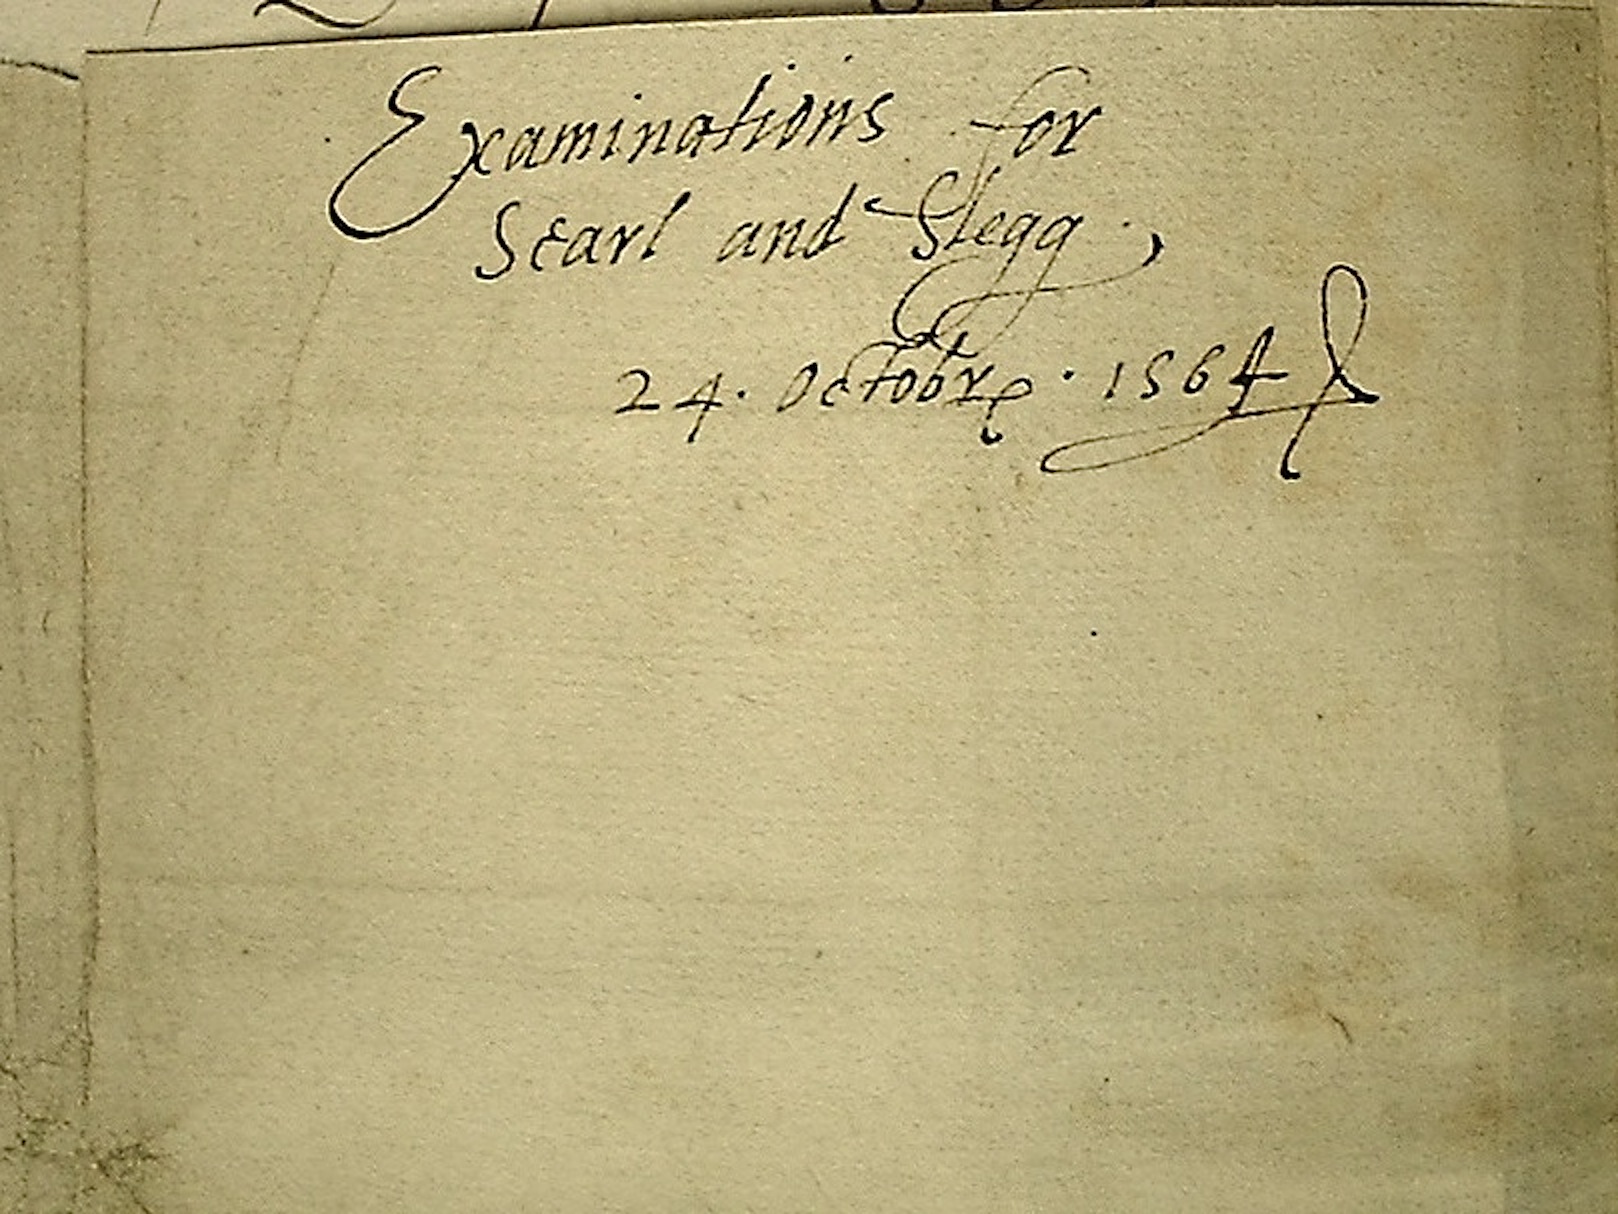 Examinations for
Scarl and Slegg,
24. Octobre. 1564